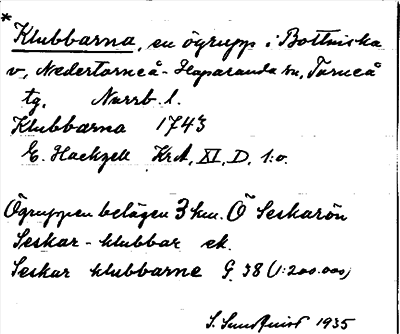 *
Klubbarna, en ögrupp i Bottniska
v, Nedertorneå-Haparanda sn, Torneå
tg. Norrb. l.
Klubbarna 1743
E. Hackzell KrA, XI, D, 1:o.
Ögruppen belägen 3 km. Ö Seskarön
Seskar-klubbar ek.
Seskar klubbarne G 38 (1:200.000)
S. Sundqvist 1935